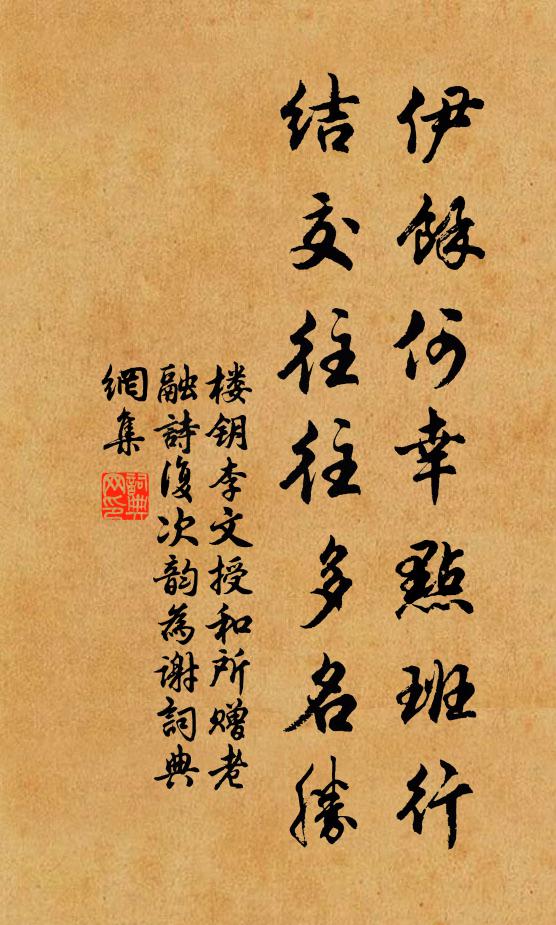 伊餘何幸點班行
结交往往多名勝
楼钥李文授和所赠老
融詩復次韵為谢詞典
網集
詞典网印